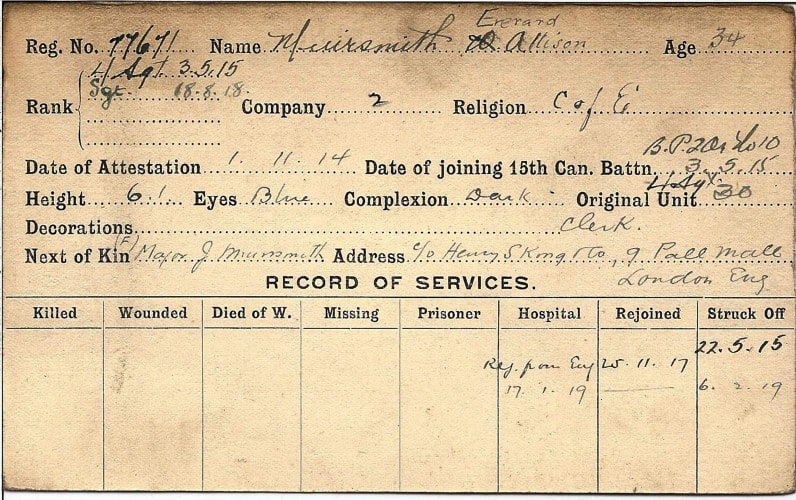 Everard
Reg. No. 77671 Name Muirsmith Allison Age 34
L/Sgt 3.5.15
Sgt. 18.8.18.
Rank Company 2 Religion C of E
B.P.2 Or No 10
Date of Attestation 1. 11. 14 Date of joining 15th Can. Battn. 3. 5. 15
L/Sgt
Height 6.1 Eyes Blue Complexion Dark Original Unit 30
Decorations Clerk.
Next of Kin (F) Major J Muirsmith Address c/o Henry S King & Co, 9 Pall Mall
London Eng
RECORD OF SERVICES.
Killed Wounded Died of W. Missing Prisoner Hospital Rejoined Struck Off
22.5.15
from Eng 25.11.17
17.1.19 6.2.19